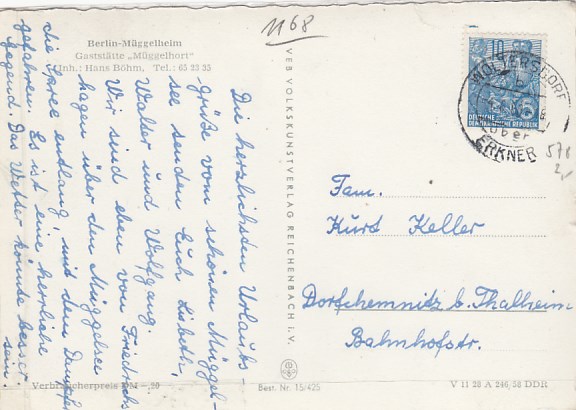 1168
Berlin-Müggelheim
Gaststätte „Müggelhort"
Inh.: Hans Böhm, Tel.: 65 22 35
Die herzlichsten Urlaubs-
grüße vom schönen Müggel-
see senden Euch Lisbeth,
Walter und Wolfgang.
Wir sind eben von Friedrichs-
hagen über den Müggelsee
die Spree entlang, mit dem Dampfer
gefahren. Es ist eine herrliche
Gegend. Das Wetter könnte besser
sein.
Verbraucherpreis DM -,20
VEB VOLKSKUNSTVERLAG REICHENBACH I. V.
Best. Nr. 15/425
10
DEUTSCHE
DEMOKRATISCHE REPUBLIK
WOLTERSDORF
über
ERKNER
578
2,-
Fam.
Kurt Keller
Dorfchemnitz b. Thalheim
Bahnhofstr.
V 11 28 A 246/58 DDR